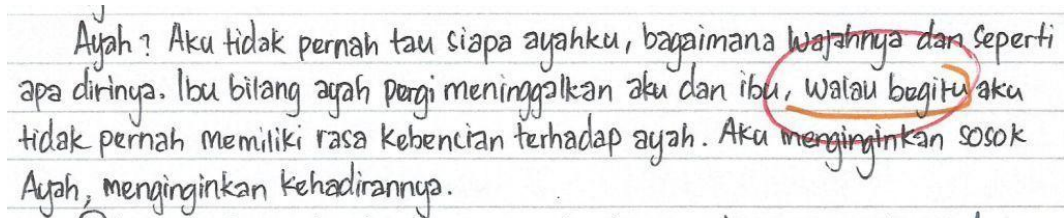 Ayah? Aku tidak pernah tau siapa ayahku, bagaimana wajahnya dan seperti
apa dirinya. Ibu bilang ayah pergi meninggalkan aku dan ibu, walau begitu aku
tidak pernah memiliki rasa kebencian terhadap ayah. Aku menginginkan sosok
Ayah, menginginkan kehadirannya.